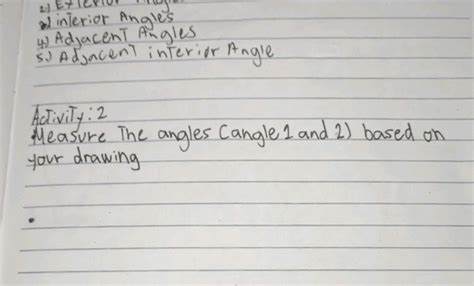 2.) Exterior Angle
3.) interior Angles
4.) Adjacent Angles
5.) Adjacent interior Angle
Activity: 2
Measure The angles (angle 1 and 2) based on
your drawing